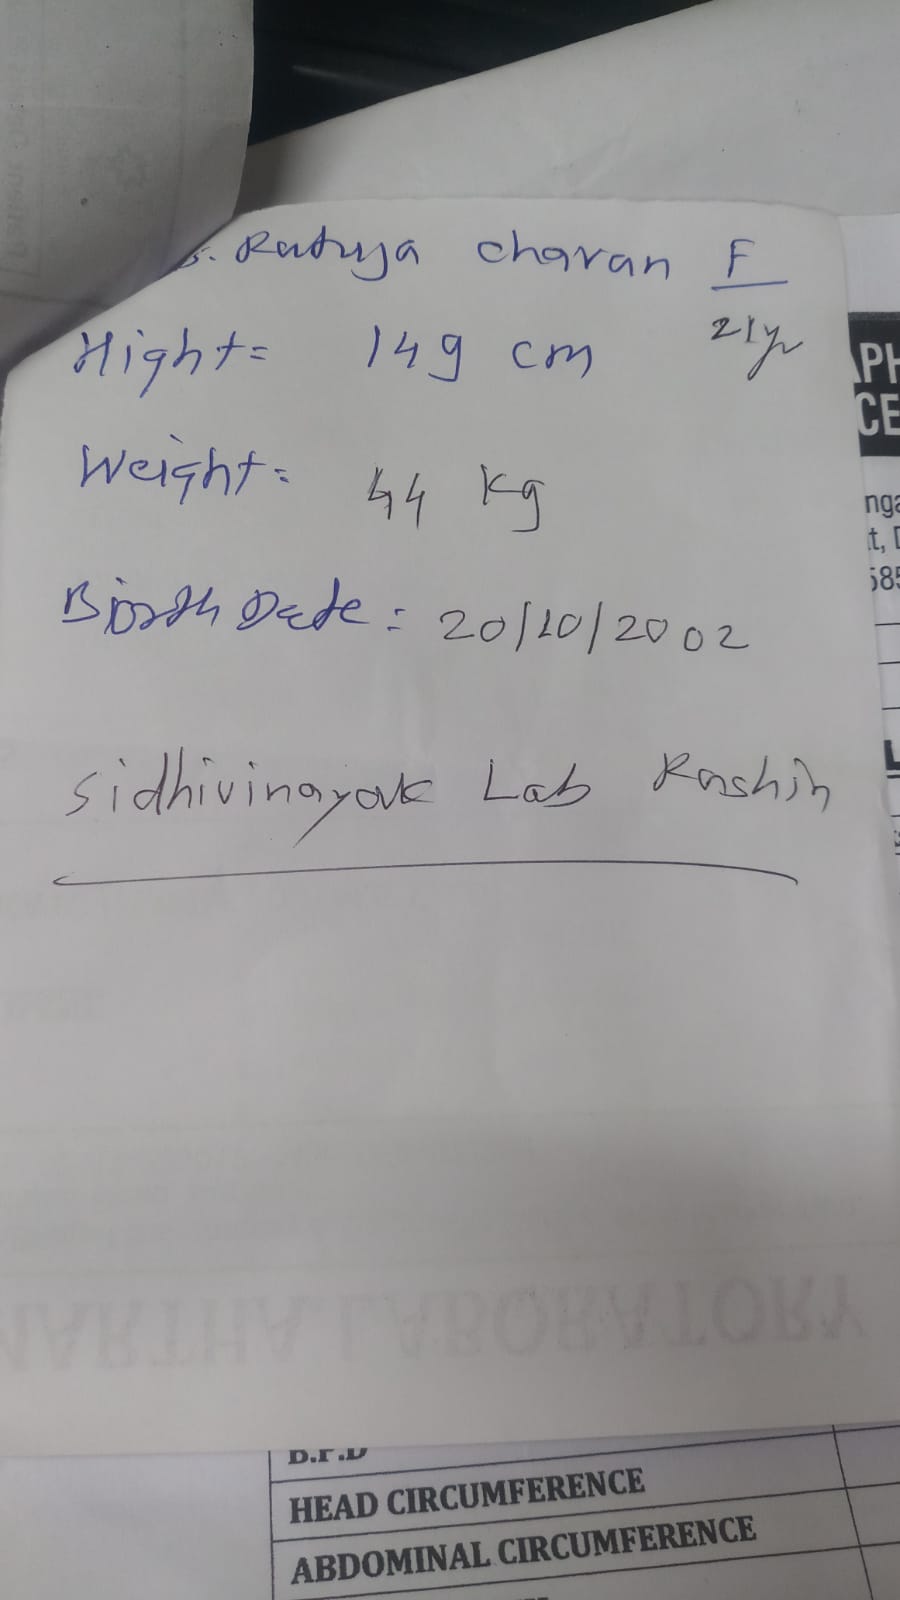 s. Rutuja charan F
21yr
Hight= 149 cm
Weight= 44 kg
Birth Date: 20/10/2002
Sidhivinayak Lab Rashin
APH
CE
t, D
585
LABORATORY
B.P.D
HEAD CIRCUMFERENCE
ABDOMINAL CIRCUMFERENCE